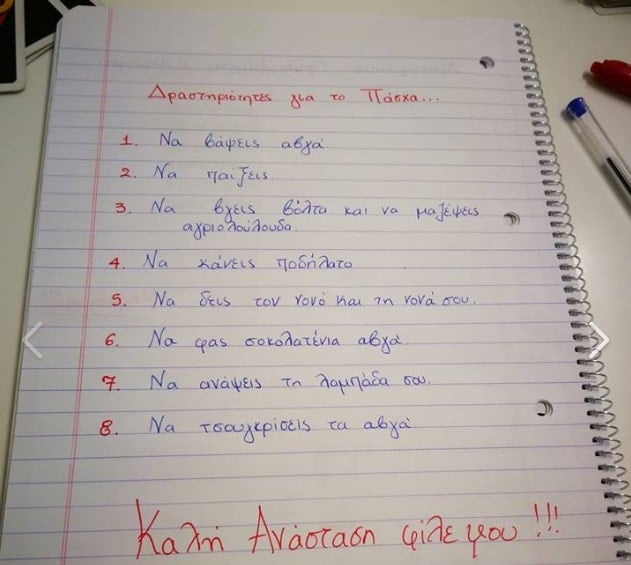 Δραστηριότητες για το Πάσχα...
1. Να βάψεις αβγά
2. Να παίξεις.
3. Να βγεις βόλτα και να μαζέψεις
αγριολούλουδα.
4. Να κάνεις ποδήλατο
5. Να δεις τον νονό και τη νονά σου.
6. Να φας σοκολατένια αβγά.
7. Να ανάψεις τη λαμπάδα σου.
8. Να τσουγκρίσεις τα αβγά.
Καλή Ανάσταση φίλε μου!!!